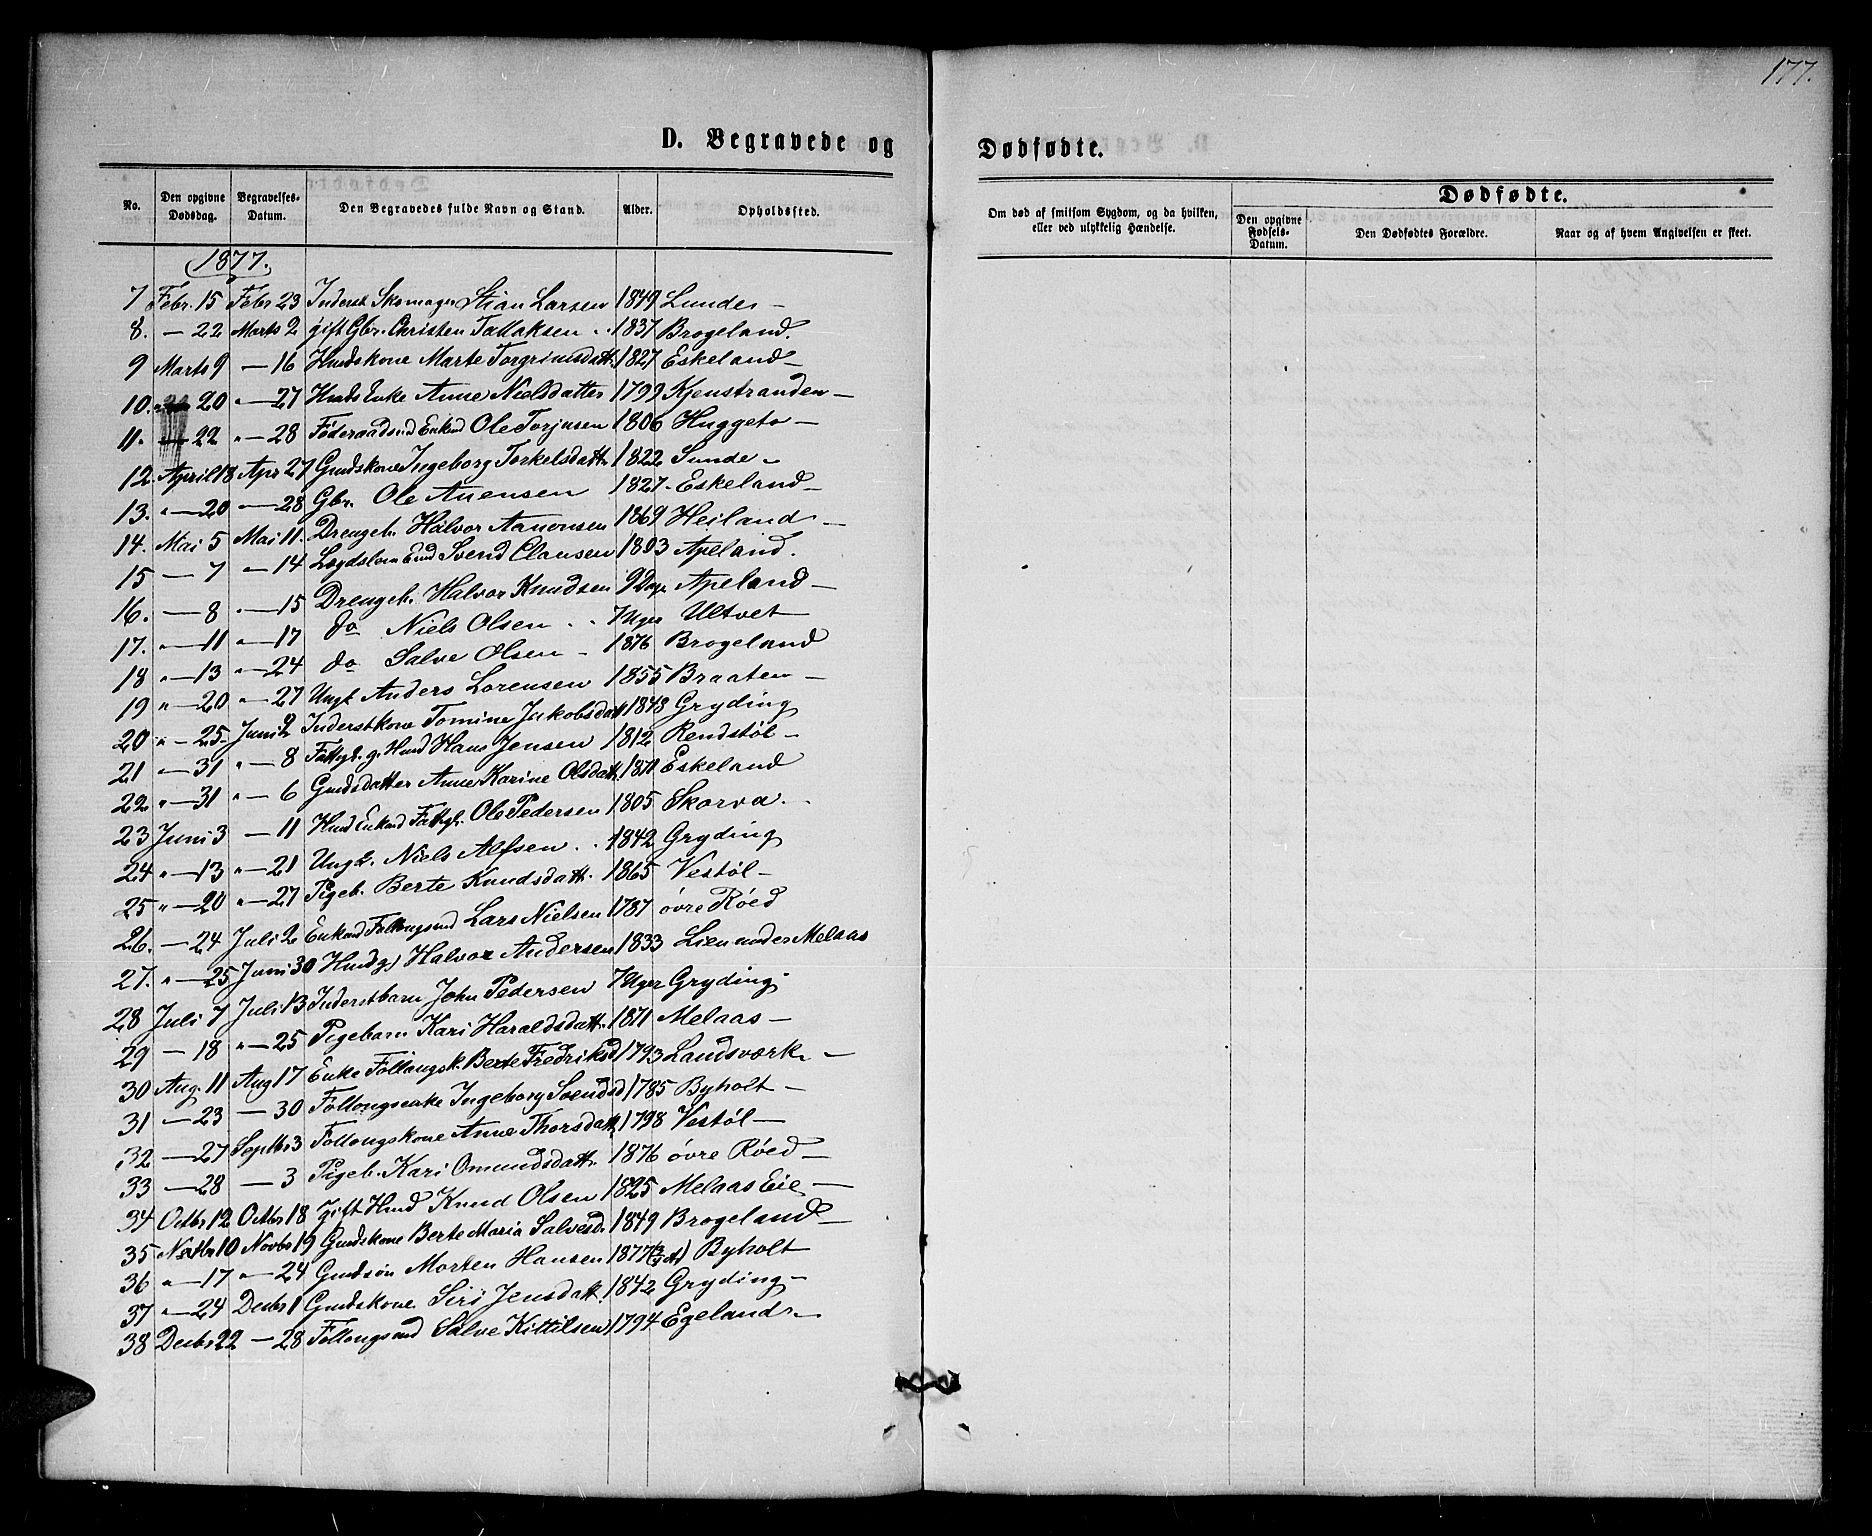 177.
D. Begravede og Dødfødte.
No. Den opgivne Dødsdag. Begravelses-Datum. Den Begravedes fulde Navn og Stand. Alder. Opholdssted.
Om død af smitsom Sygdom, og da hvilken, eller ved ulykkelig Hændelse. Dødfødte. Den opgivne Fødsels-Datum. Den Dødfødtes Forældre. Naar og af hvem Angivelsen er skeet.
1877.
7 Febr. 15 Febr 23 Inderst Skomager Stian Larsen 1849 Lunde –
8. – 22 Marts 2 gift Gbr. Christen Tallaksen 1837 Brogeland.
9 Marts 9 – 16 Husdskone Marte Torgrimsdatt. 1827 Eskeland –
10. 20 " – 27 Huds Enke Anne Nielsdatter 1799 Kjenstranden –
11. – 22 " – 28 Føderaadsmd Enkmd Ole Torjusen 1806 Huggeto –
12. April 18 Apr 27 Gmdskone Ingeborg Torkelsdatt. 1822 Sunde –
13. " – 20 " – 28 Gbr. Ole Anensen 1827 Eskeland –
14. Mai 5 Mai 11. Drengeb. Halvor Aanonsen 1869 Heiland –
15 – 7 " – 14 Lægdslem Emd Svend Clausen 1803 Apeland.
16. – 8 " – 15 Drengeb. Halvor Knudsen Apeland –
17. " – 11 " – 17 do Niels Olsen 7 Uger Ultvet
18 " – 13 " – 24 do Salve Olsen – 1876 Brogeland
19 " – 20 " – 27 Ungk. Anders Lorensen 1855 Braaten –
20 " – 25 Juni 2 Inderstkone Tomine Jakobsdatt 1848 Gryding
21 " – 31 " – 8 Fattigl. g. Hmd Hans Jensen 1812 Rendstøl –
22 " – 31 " – 6 Gmdsdatter Anne Karine Olsdatt. 1871 Eskeland
23 Juni 3 – 11 Hmd Enkmd Fattigl. Ole Pedersen 1805 Skorva.
24 " – 13 " – 21 Ungk. Niels Alfsen 1842 Gryding
25 " – 20 " – 27 Pigeb. Berte Knudsdatt. 1865 Vestøl –
26. – 24 Juli 2 Enkmd Follongsmd Lars Nielsen 1787 øvre Røed
27. " – 25 Juni 30 Hmd g. Halvor Andersen 1833 Lien under Melaas
28 Juli 7 Juli 13 Inderstbarn John Pedersen 7 Uger Gryding
29 – 18 " – 25 Pigebarn Kari Haraldsdatt. 1871 Melaas –
30 Aug 11 Aug 17 Enke Follongsk. Berte Fredriksd 1793 Landsværk –
31 – 23 – 30 Follongsenke Ingeborg Svendsd 1785 Byholt –
32 – 27 Septbr 3 Follongskone Anne Thorsdatt. 1798 Vestøl –
33 – 28 – 3 Pigeb. Kari Omundsdatt. 1876 øvre Røed –
34 Octbr 12 Octbr 18 gift Hmd Knud Olsen 1825 Melaas Eie –
35 Novbr 10 Novbr 19 Gmdskone Berte Maria Salvesd. 1849 Brogeland –
36 " – 17 " – 24 Gmdssøn Morten Hansen 1877 Byholt
37 " – 24 Decbr 1 Gmdskone Siri Jensdatt. 1842 Gryding –
38 Decbr 22 – 28 Follongsmd Salve Kittilsen 1794 Egeland –